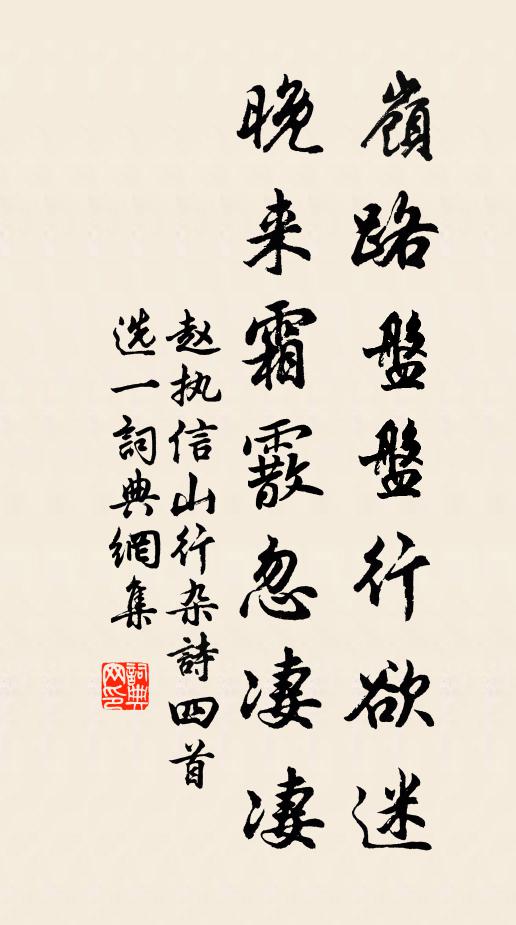 嶺路盤盤行欲迷
晚来霜霰忽凄凄
赵执信山行杂詩四首
选一詞典網集
詞典網印